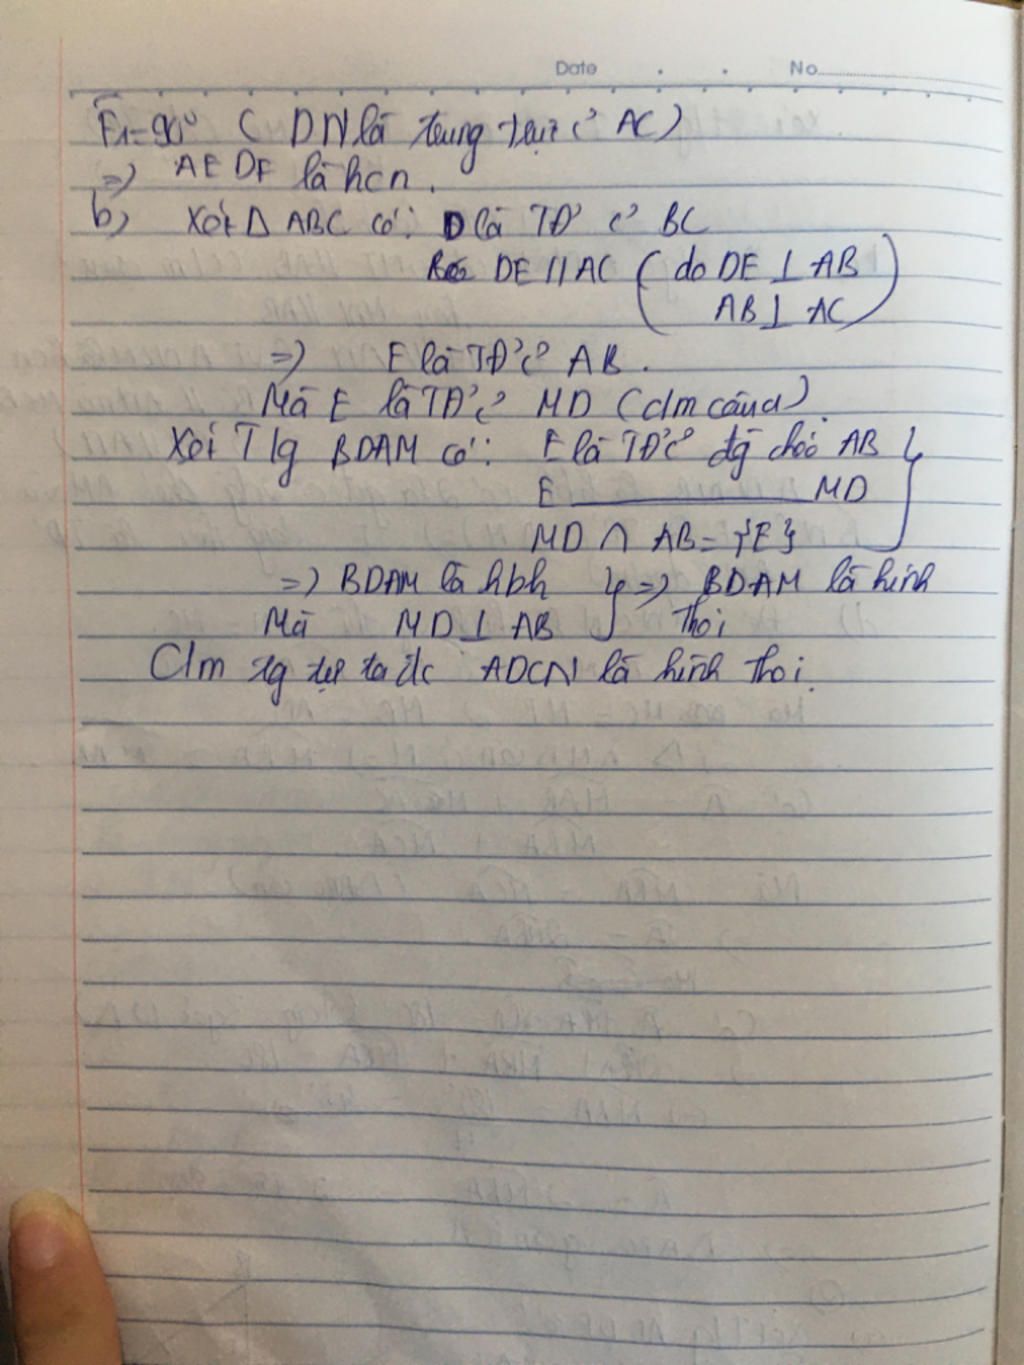 Date . . No
F₁=90° ( DN là trung trực c² AC)
=> AEDF là hcn.
b) Xét Δ ABC có: D là TĐ² c² BC
DE // AC ( do DE ⊥ AB
AB ⊥ AC )
=> E là TĐ² c² AB.
Mà E là TĐ² c² MD (clm câu a).
Xét T/g BDAM có: E là TĐ² c² đg chéo AB
E ———— MD
MD ∩ AB = {E}
=> BDAM là hbh } => BDAM là hình
Mà MD ⊥ AB } thoi
Clm tg tự ta đc ADCN là hình thoi.